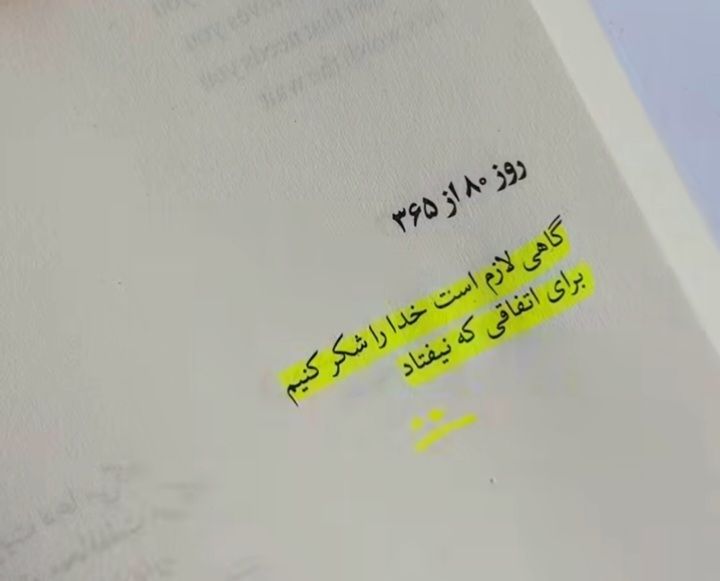 روز ۸۰ از ۳۶۵
گاهی لازم است خدا را شکر کنیم
برای اتفاقی که نیفتاد